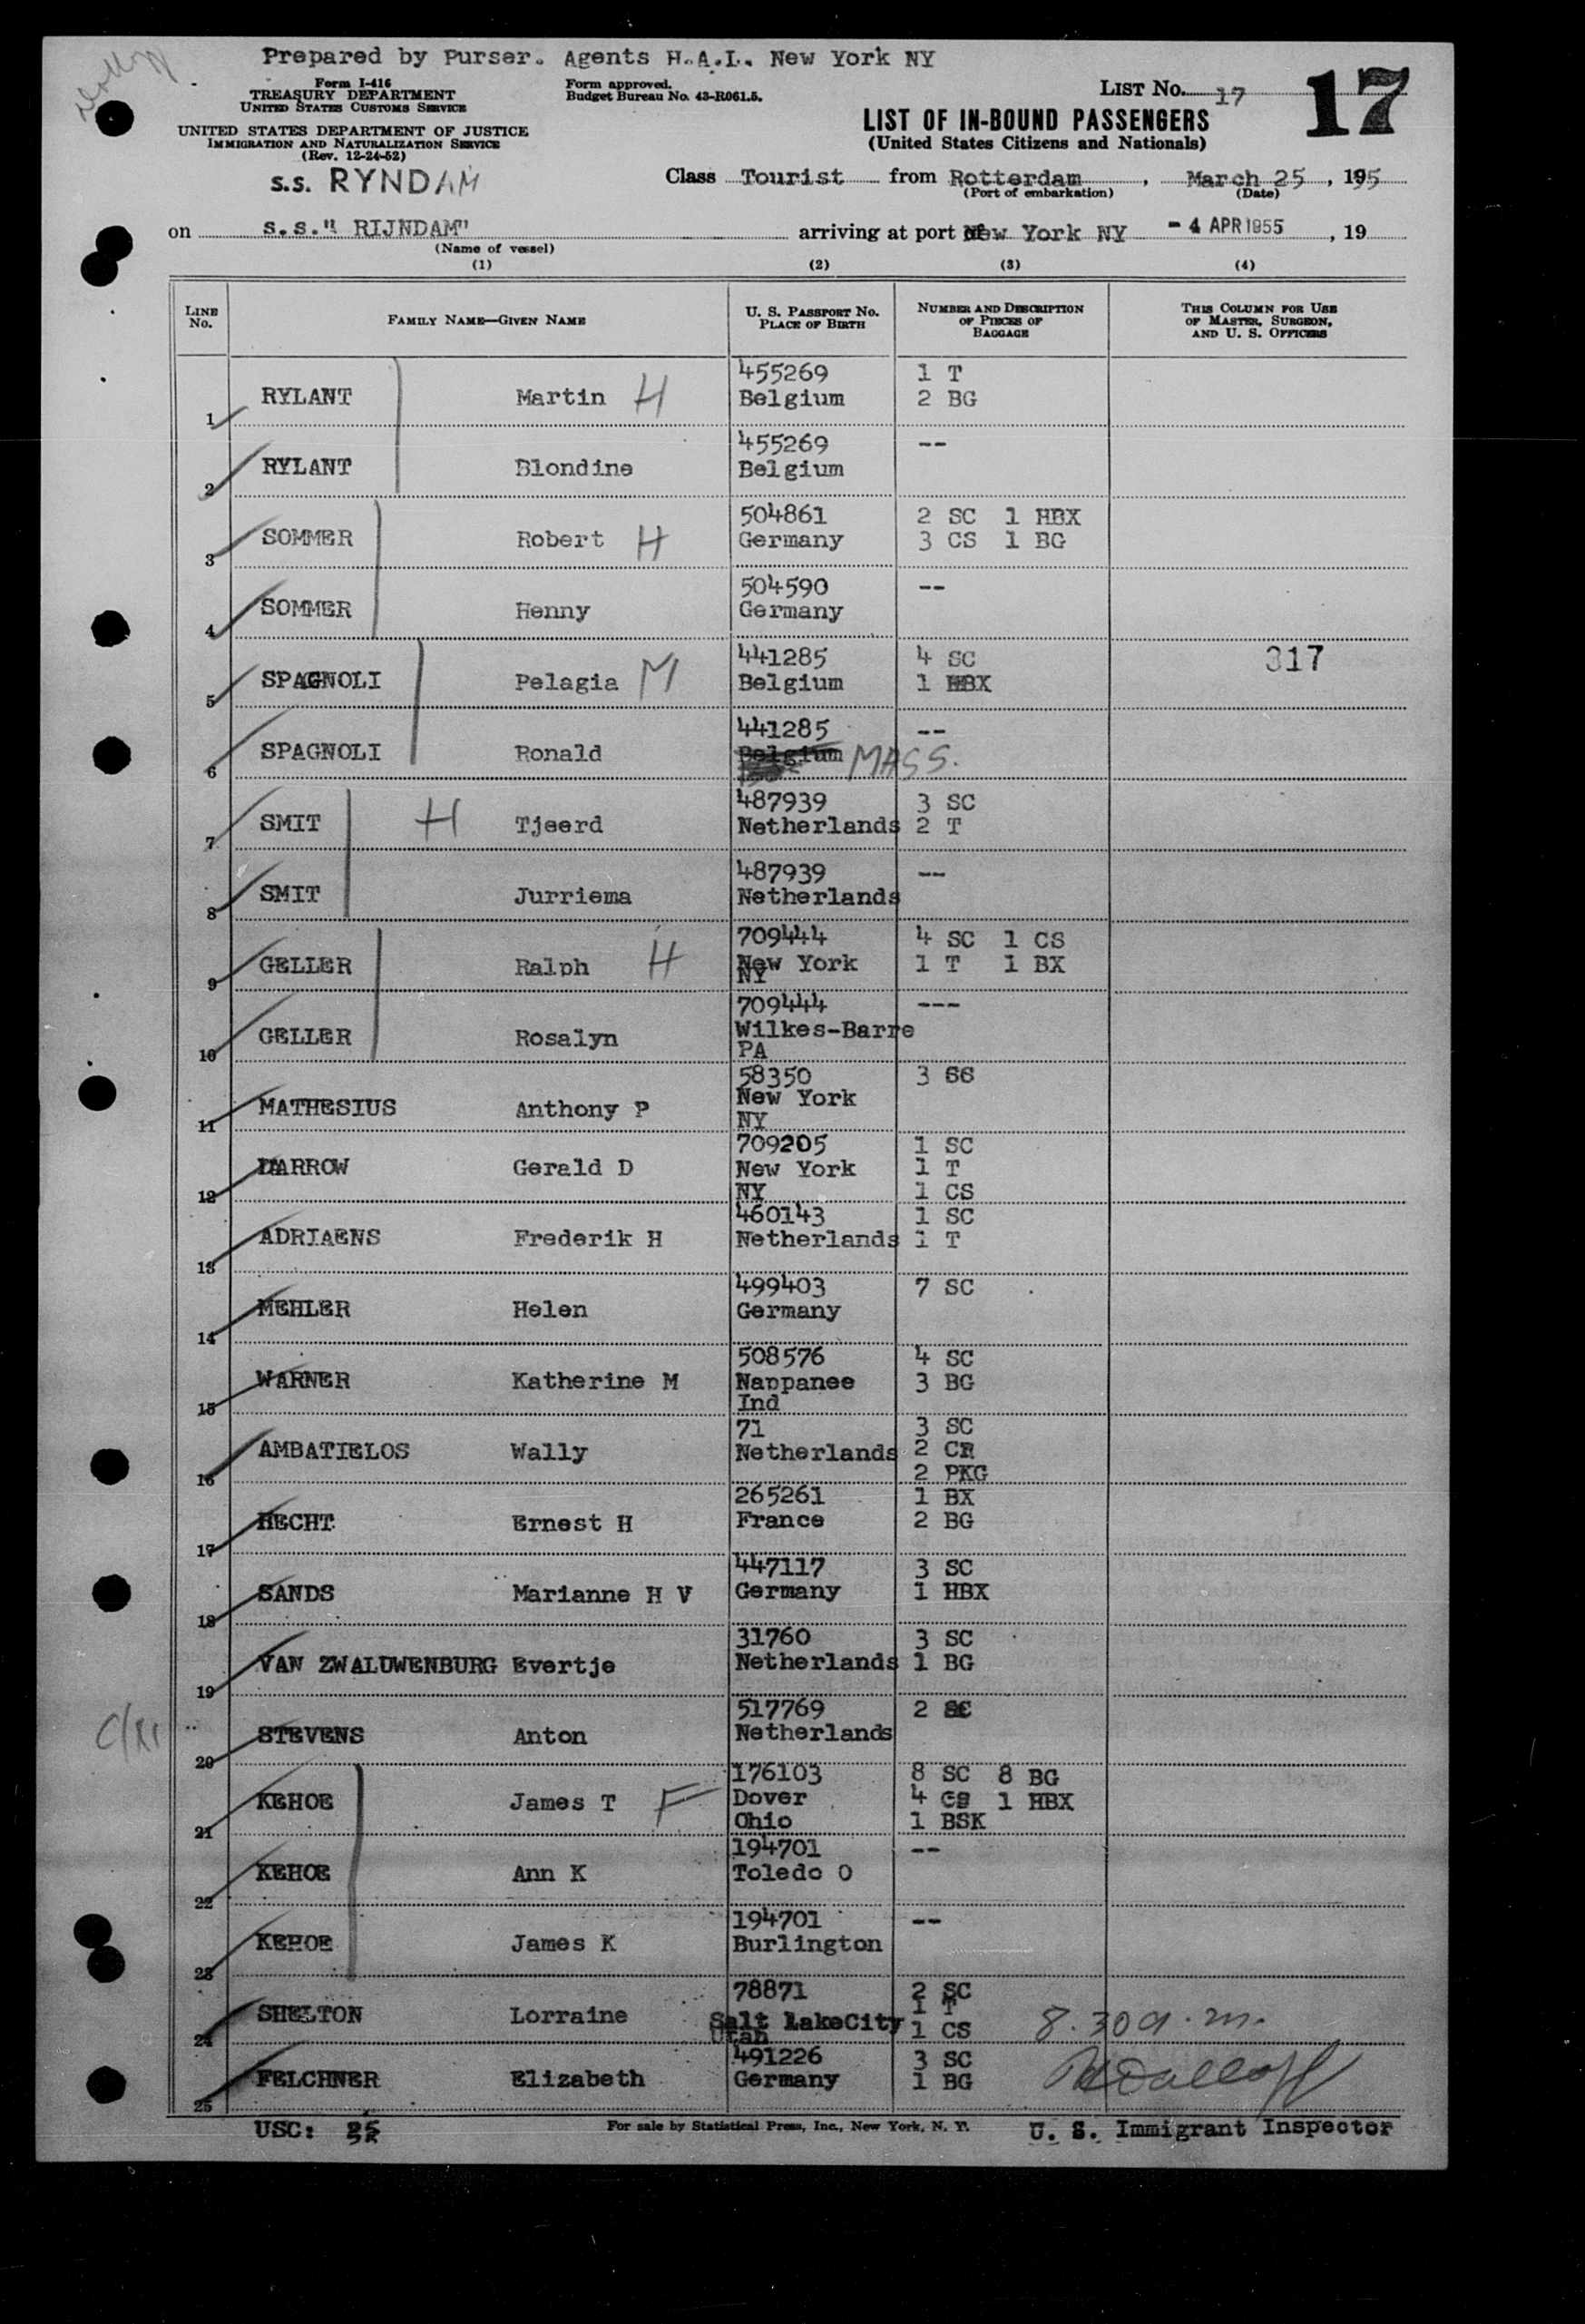 Prepared by Purser. Agents H.A.L. New York NY
Form I-416
TREASURY DEPARTMENT
UNITED STATES CUSTOMS SERVICE
Form approved.
Budget Bureau No. 43-R061.5.
LIST No. 17
17
UNITED STATES DEPARTMENT OF JUSTICE
IMMIGRATION AND NATURALIZATION SERVICE
(Rev. 12-24-52)
LIST OF IN-BOUND PASSENGERS
(United States Citizens and Nationals)
S.S. RYNDAM
Class Tourist from Rotterdam, March 25, 195
(Port of embarkation) (Date)
on s.s." RIJNDAM" arriving at port of New York NY - 4 APR 1955, 19
(Name of vessel)
(1) (2) (3) (4)
LINE No. FAMILY NAME—GIVEN NAME U. S. PASSPORT No. PLACE OF BIRTH NUMBER AND DESCRIPTION OF PIECES OF BAGGAGE THIS COLUMN FOR USE OF MASTER, SURGEON, AND U. S. OFFICERS
455269 1 T
1 RYLANT Martin H Belgium 2 BG
455269 --
2 RYLANT Blondine Belgium
504861 2 SC 1 HBX
3 SOMMER Robert H Germany 3 CS 1 BG
504590 --
4 SOMMER Henny Germany
441285 4 SC 317
5 SPAGNOLI Pelagia M Belgium 1 HBX
441285 --
6 SPAGNOLI Ronald Belgium MASS.
487939 3 SC
7 SMIT H Tjeerd Netherlands 2 T
487939 --
8 SMIT Jurriema Netherlands
709444 4 SC 1 CS
9 GELLER Ralph H New York 1 T 1 BX
NY
709444 ---
10 GELLER Rosalyn Wilkes-Barre
PA
58350 3 SC
11 MATHESIUS Anthony P New York
NY
709205 1 SC
12 DARROW Gerald D New York 1 T
NY 1 CS
460143 1 SC
13 ADRIAENS Frederik H Netherlands 1 T
499403 7 SC
14 MEHLER Helen Germany
508576 4 SC
15 WARNER Katherine M Nappanee 3 BG
Ind
71 3 SC
16 AMBATIELOS Wally Netherlands 2 CR
2 PKG
265261 1 BX
17 HECHT Ernest H France 2 BG
447117 3 SC
18 SANDS Marianne H V Germany 1 HBX
31760 3 SC
19 VAN ZWALUWENBURG Evertje Netherlands 1 BG
517769 2 SC
20 STEVENS Anton Netherlands
176103 8 SC 8 BG
21 KEHOE James T F Dover 4 CS 1 HBX
Ohio 1 BSK
194701 --
22 KEHOE Ann K Toledo O
194701 --
23 KEHOE James K Burlington
78871 2 SC
1 T
24 SHELTON Lorraine Salt LakeCity 1 CS 8.30 a.m.
Utah
491226 3 SC
25 FELCHNER Elizabeth Germany 1 BG
USC: 25 For sale by Statistical Press, Inc., New York, N. Y. U. S. Immigrant Inspector